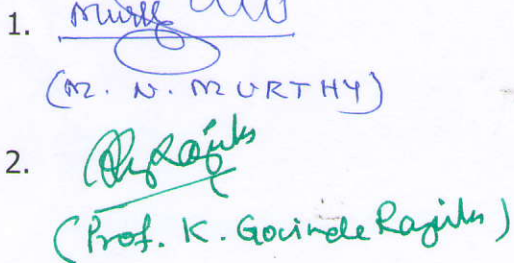 1.
(M. N. MURTHY)
2.
(Prof. K. Govinde Rajulu)